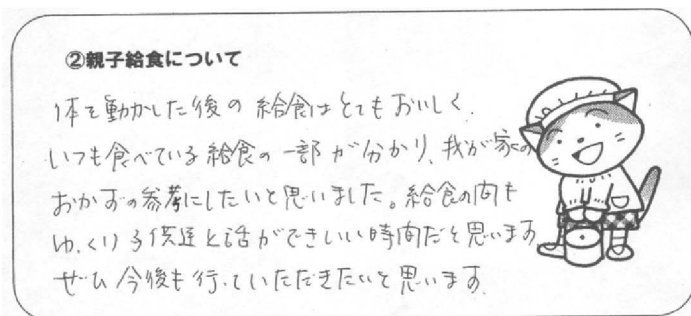 ②親子給食について
体を動かした後の給食はとてもおいしく、
いつも食べている給食の一部が分かり、我が家の
おかずの参考にしたいと思いました。給食の間も
ゆっくり子供達と話ができいい時間だと思います
ぜひ今後も行っていただきたいと思います。